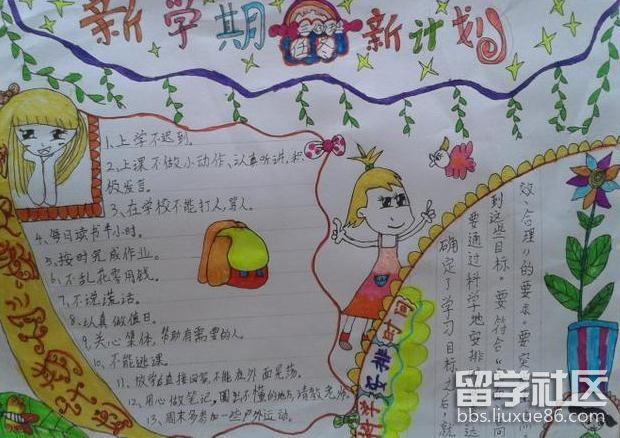 新学期
新计划
1、上学不迟到。
2、上课不做小动作、认真听讲,积
极发言。
3、在学校不能打人,骂人。
4、每日读书半小时。
5、按时完成作业。
6、不乱花零用钱。
7、不说谎话。
8、认真做值日。
9、关心集体,帮助有需要的人。
10、不能逃课。
11、放学后直接回家,不能在外面晃荡。
12、用心做笔记,圈出不懂的地方,请教老师。
13、周末多参加一些户外运动。
科学安排时间
确定了学习目标之后,就
要通过科学地安排
到这些目标。要符合
效、合理”的要求。要
留学社区
bbs.liuxue86.com